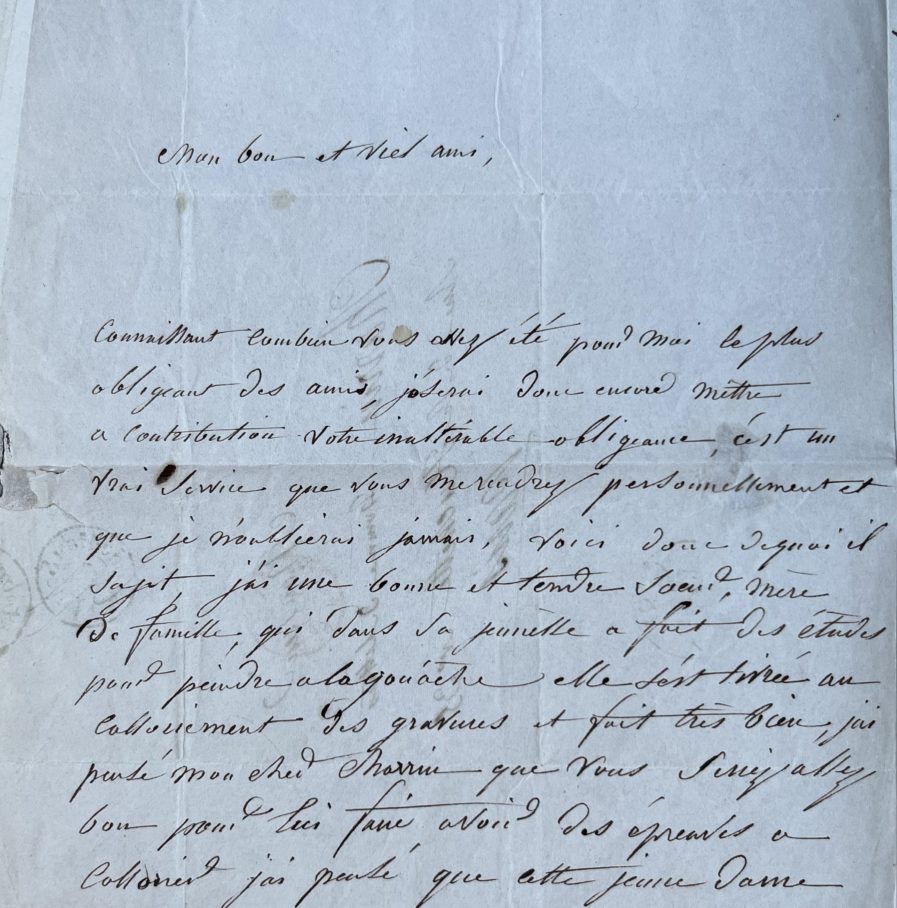 Mon bon et viel ami,
Connaissant combien vous avez été pour moi le plus
obligeant des amis, j'oserai donc encore mettre
a contribution votre inaltérable obligeance, c'est un
vrai service que vous me rendrez personnellement et
que je n'oublierai jamais, voici donc dequoi il
sajit, j'ai une bonne et tendre soeur, mère
De famille, qui dans sa jeunesse a fait des études
pour peindre a la gouache elle s'est livrée au
colloriement des gravures et fait très bien, j'ai
pensé mon cher que vous seriez assez
bon pour lui faire avoir des épreuves a
collorier j'ai pensé que cette jeune dame